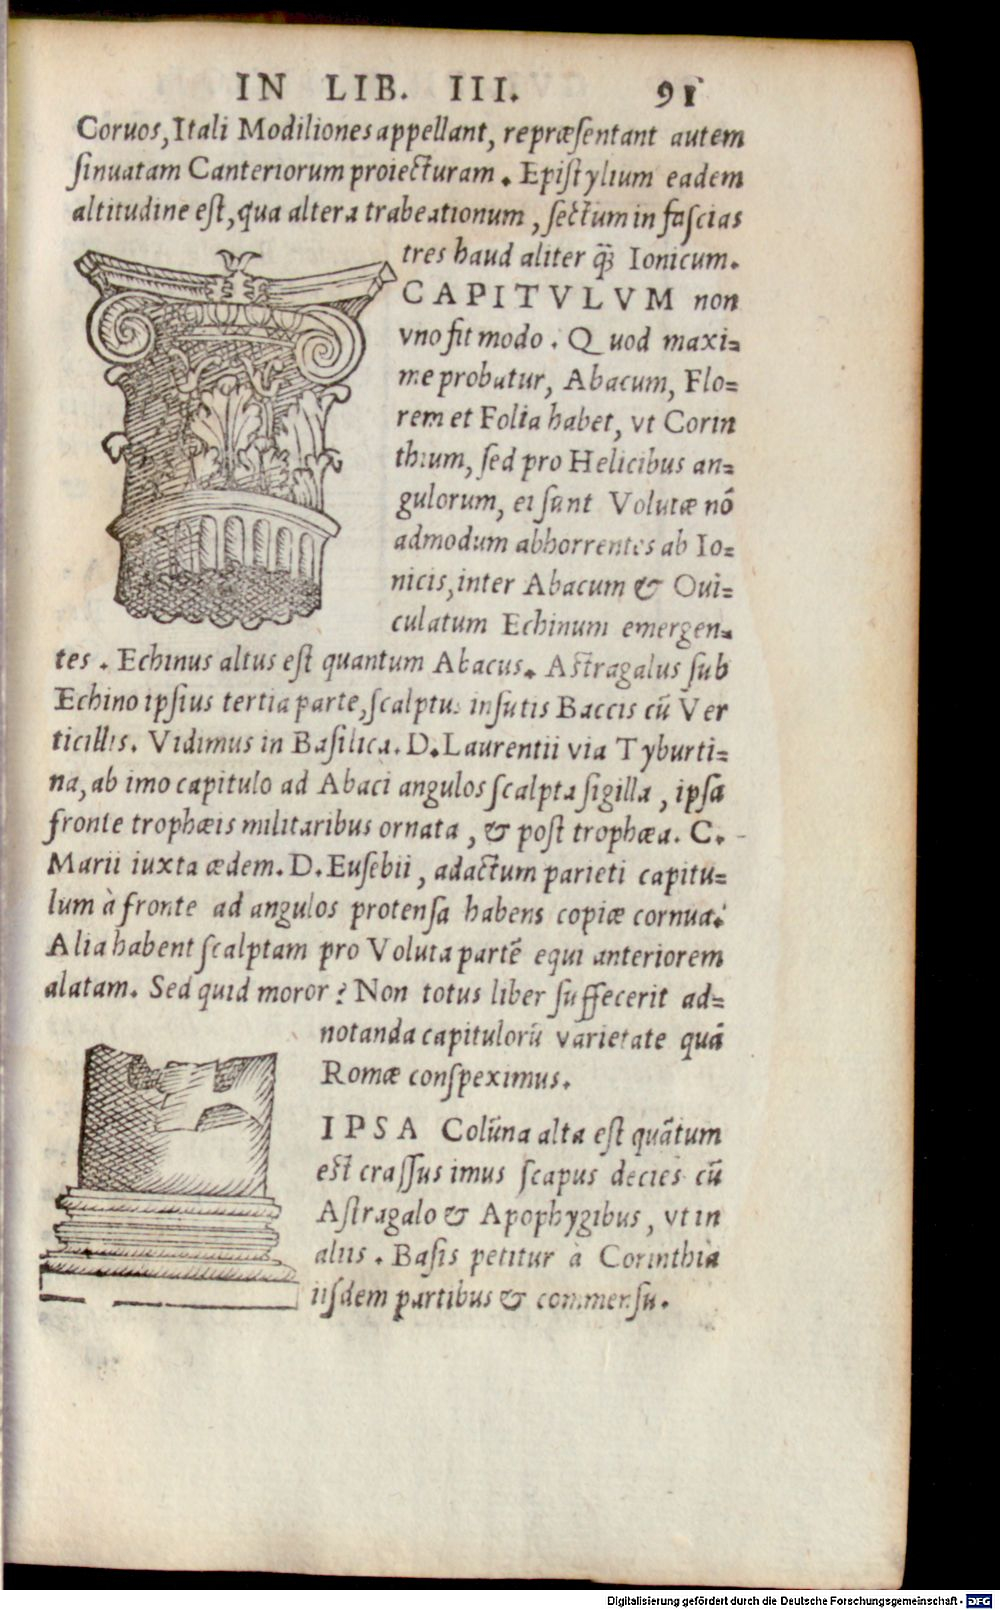 IN LIB. III. 91
Coruos, Itali Modiliones appellant, repræsentant autem
sinuatam Canteriorum proiecturam. Epistylium eadem
altitudine est, qua altera trabeationum, sectum in fascias
tres haud aliter q̃ꝫ Ionicum.
CAPITVLVM non
vno fit modo. Quod maxi=
me probatur, Abacum, Flo=
rem et Folia habet, vt Corin
thium, sed pro Helicibus an=
gulorum, ei sunt Volutæ nõ
admodum abhorrentes ab Io=
nicis, inter Abacum & Oui=
culatum Echinum emergen=
tes. Echinus altus est quantum Abacus. Astragalus sub
Echino ipsius tertia parte, scalptus insutis Baccis cũ Ver
ticillis. Vidimus in Basilica. D. Laurentii via Tyburti=
na, ab imo capitulo ad Abaci angulos scalpta sigilla, ipsa
fronte trophæis militaribus ornata, & post trophæa. C.
Marii iuxta ædem. D. Eusebii, adactum parieti capitu=
lum à fronte ad angulos protensa habens copiæ cornua.
Alia habent scalptam pro Voluta partẽ equi anteriorem
alatam. Sed quid moror? Non totus liber suffecerit ad=
notanda capitulorũ varietate quã
Romæ conspeximus.
IPSA Colũna alta est quãtum
est crassus imus scapus decies cũ
Astragalo & Apophygibus, vt in
aliis. Basis petitur a Corinthia
iisdem partibus & commensu.
Digitalisierung gefördert durch die Deutsche Forschungsgemeinschaft - DFG